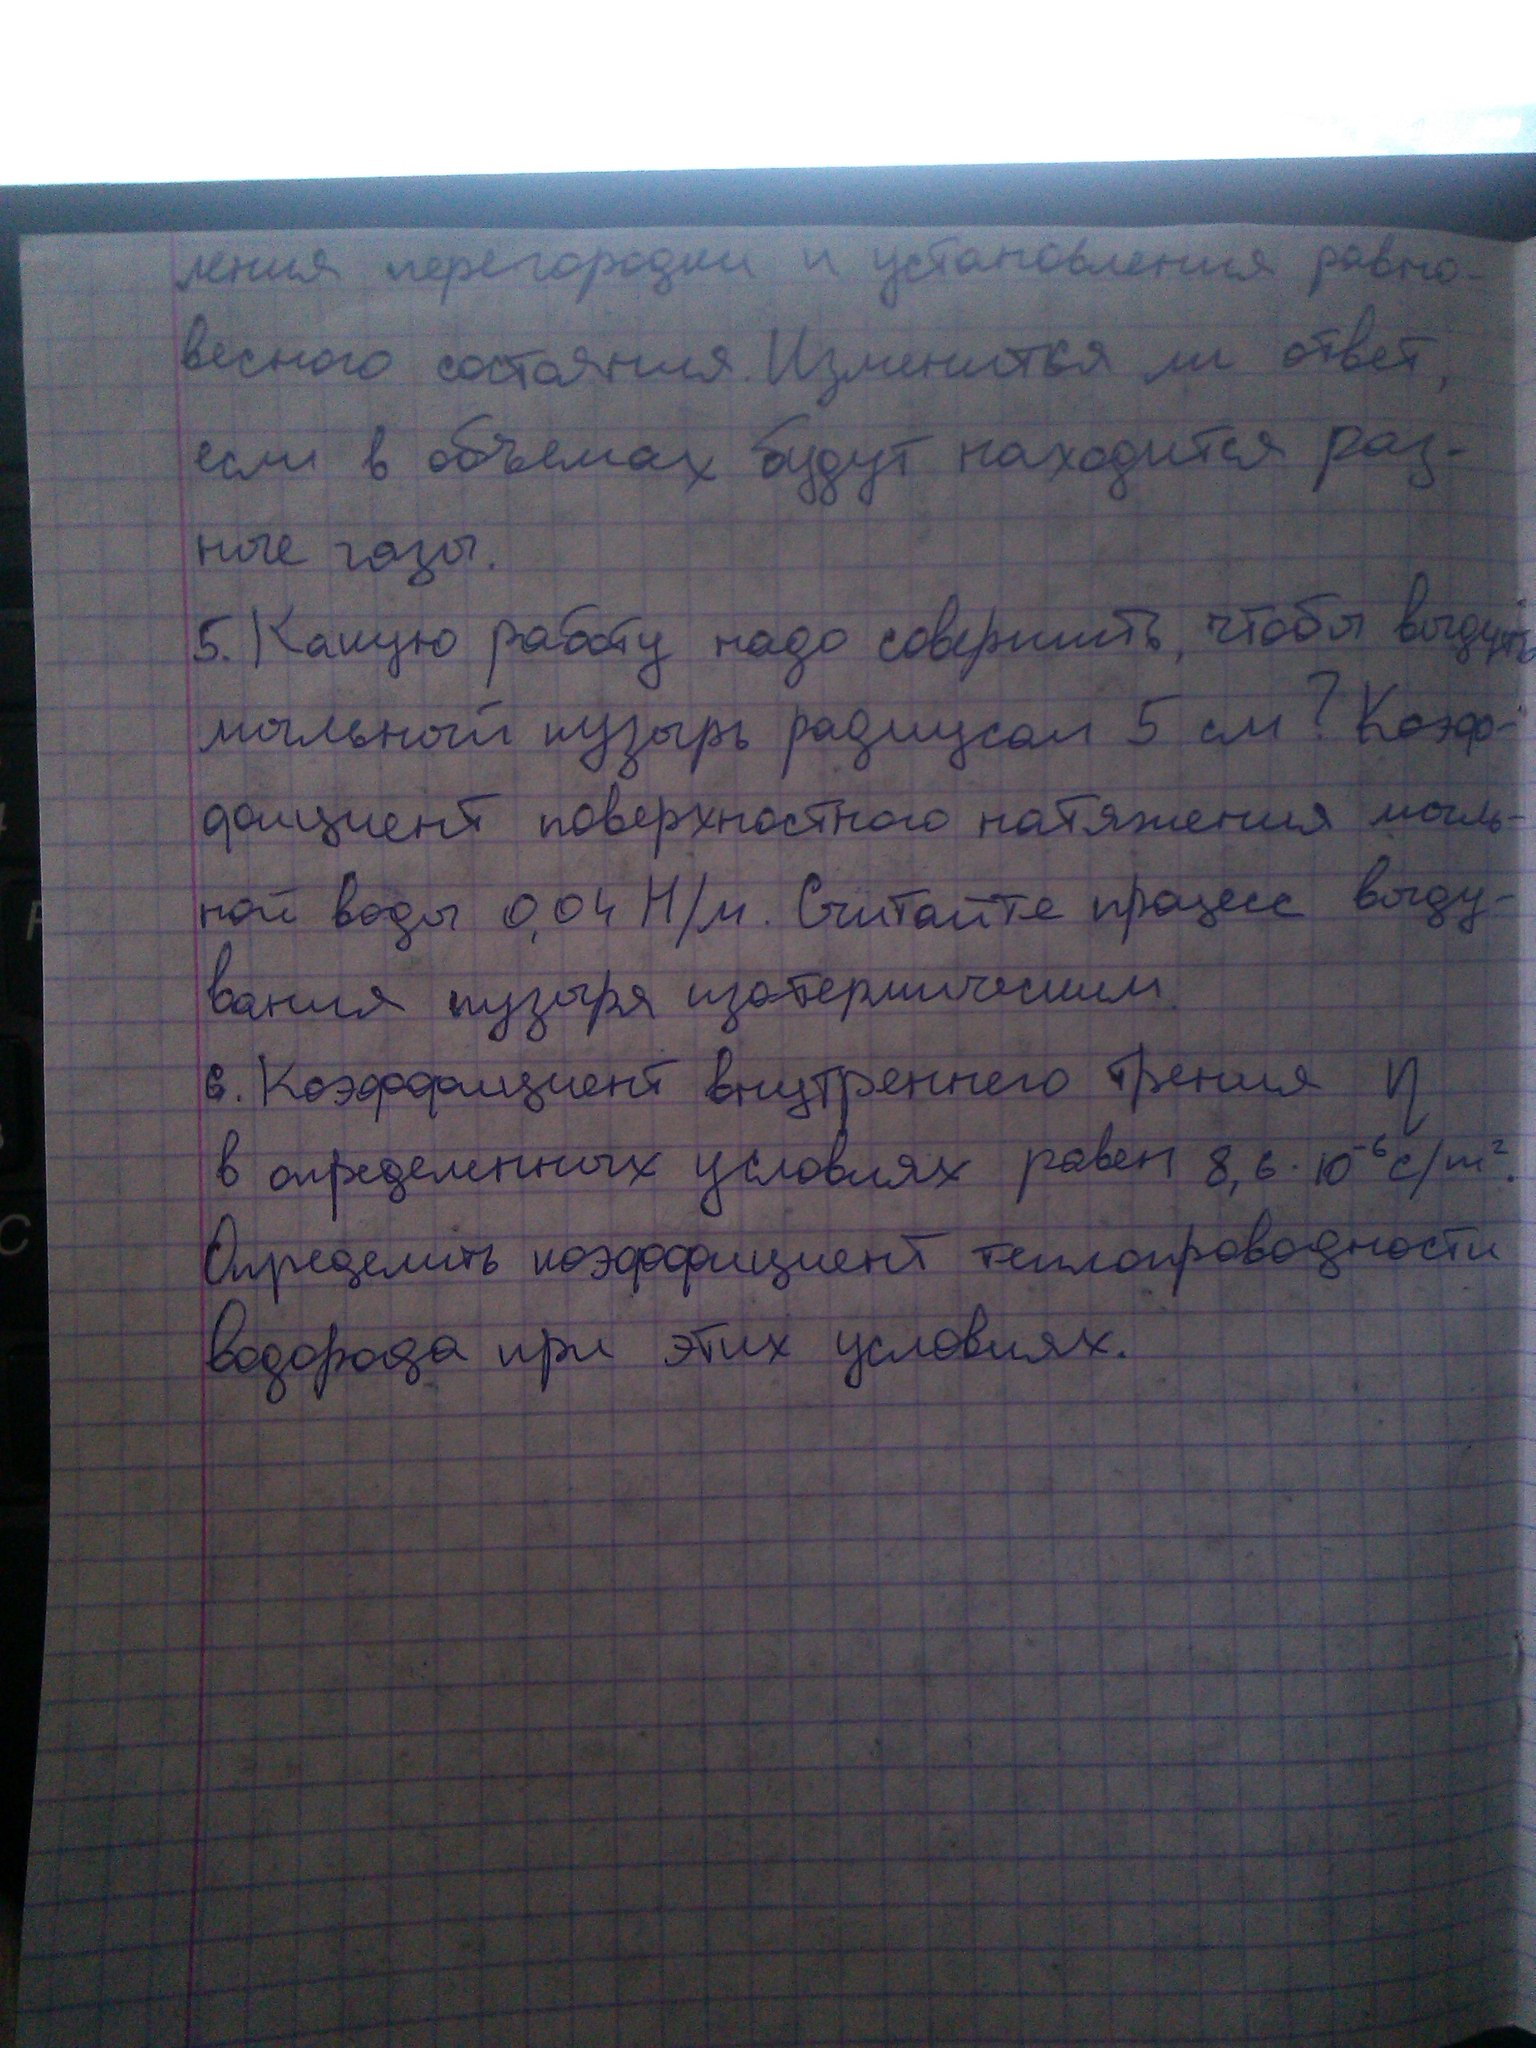 ления перегородки и установления равно-
весного состояния. Измениться ли ответ,
если в объемах будут находится раз-
ные газы.
5. Какую работу надо совершить, чтобы выдуть
мыльный пузырь радиусом 5 см? Коэф-
фициент поверхностного натяжения мыль-
ной воды 0,04 Н/м. Считайте процесс выду-
вания пузыря изотермическим
6. Коэффициент внутреннего трения η
в определенных условиях равен 8,6·10⁻⁶ с/m².
Определить коэффициент теплопроводности
водорода при этих условиях.